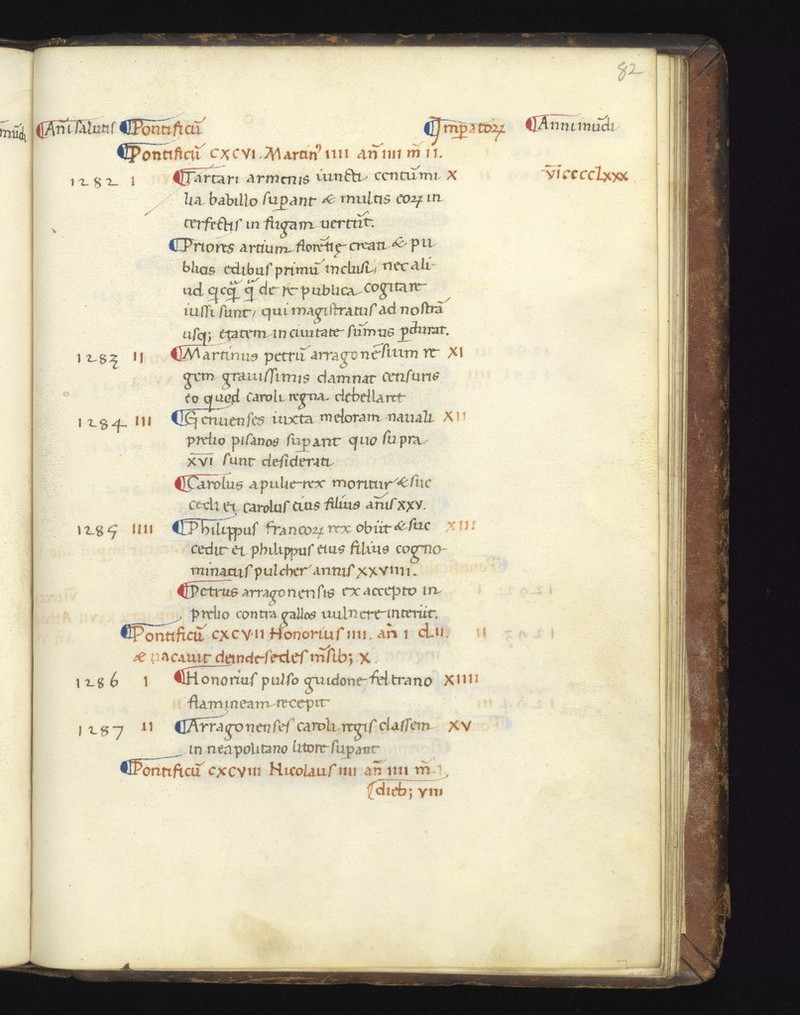 82
mūdi
Añi salutis Pontificū Imꝑatoꝝ Anni mūdi
Pontificū CXCVI. Martinꝰ IIII añ IIII m̄ II.
1282 I Tartari armenis iuncti centum mi X VĪccccLxxx
lia babillo suꝑant & multis eoꝝ in
terfectis in fugam uertūt.
Priores artium florētię creati & pu
blicis edibus primū inclusi, nec ali
ud qcq̄ q̄ de re publica cogitare
iussi sunt, qui magistratus ad nostrā
usq; etatem in ciuitate sūmus ꝑdurat.
1283 II Martinus petrū arragonēsium re XI
gem grauissimis damnat censuris
eo quod caroli regna debellaret
1284 III Genuenses iuxta meloram nauali XII
prelio pisanos suꝑant quo supra
X̅V̅I̅ sunt desiderati
Carolus apulie rex moritur & suc
cedit ei carolus eius filius añis XXV.
1285 IIII Philippus francoꝝ rex obiit & suc XIII
cedit ei philippus eius filius cogno-
minatus pulcher annis XXVIIII.
Petrus arragonensis ex accepto in
prelio contra gallos uulnere interiit.
Pontificū CXCVII Honorius IIII. añ I d. II.
& uacauit deinde sedes m̄sib; X
1286 I Honorius pulso guidone feltrano XIIII
flamineam recepit
1287 II Arragonenses caroli regis classem XV
in neapolitano litore suꝑant
Pontificū CXCVIII Nicolaus IIII añ IIII m̄. I,
dieb; VIII